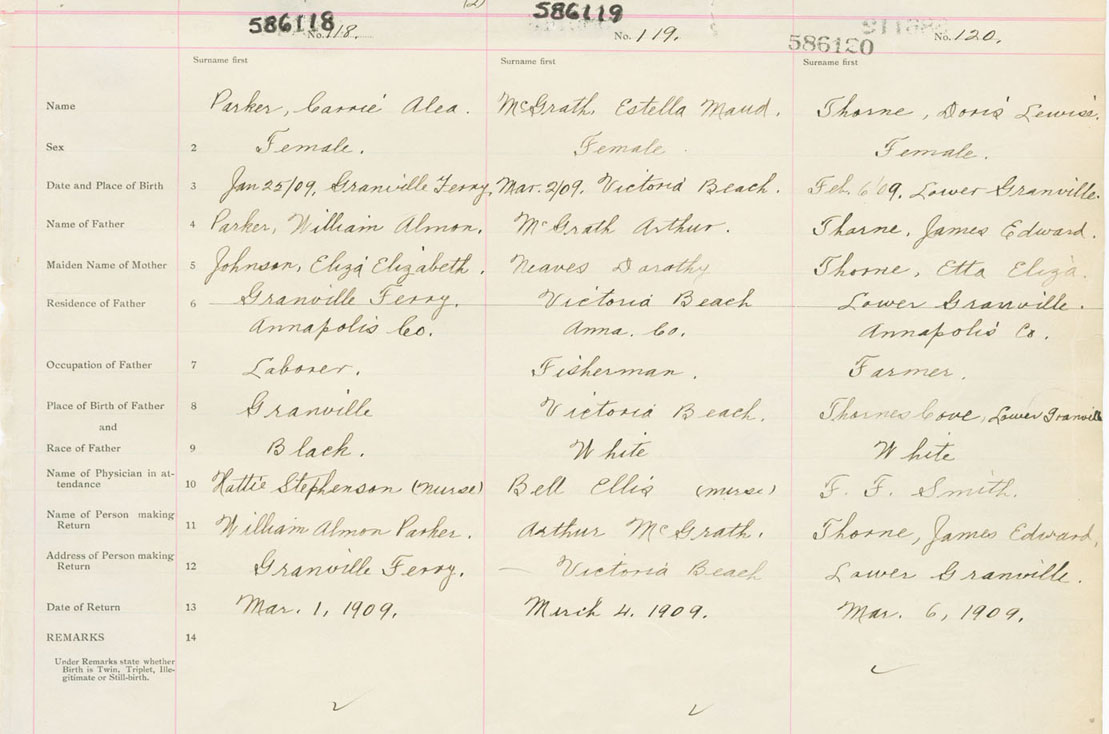 586118 No. 118.
586119 No. 119.
586120 No. 120.
Surname first Surname first Surname first
Name Parker, Carrie Alea. McGrath, Estella Maud. Thorne, Doris Lewise.
Sex 2 Female. Female Female.
Date and Place of Birth 3 Jan 25/09, Granville Ferry, Mar. 2/09. Victoria Beach. Feb. 6/09, Lower Granville.
Name of Father 4 Parker, William Almon. McGrath Arthur. Thorne, James Edward.
Maiden Name of Mother 5 Johnson, Eliza Elizabeth. Neaves Dorathy Thorne, Etta Eliza.
Residence of Father 6 Granville Ferry. Victoria Beach Lower Granville.
Annapolis Co. Anna. Co. Annapolis Co.
Occupation of Father 7 Laborer. Fisherman. Farmer.
Place of Birth of Father 8 Granville Victoria Beach. Thornes Cove, Lower Granvill
and
Race of Father 9 Black. White White
Name of Physician in at-
tendance 10 Hattie Stephenson (nurse) Bell Ellis (nurse) F. F. Smith.
Name of Person making
Return 11 William Almon Parker. Arthur McGrath. Thorne, James Edward,
Address of Person making
Return 12 Granville Ferry. — Victoria Beach Lower Granville.
Date of Return 13 Mar. 1, 1909. March 4. 1909. Mar. 6, 1909.
REMARKS 14
Under Remarks state whether
Birth is Twin, Triplet, Ille-
gitimate or Still-birth.